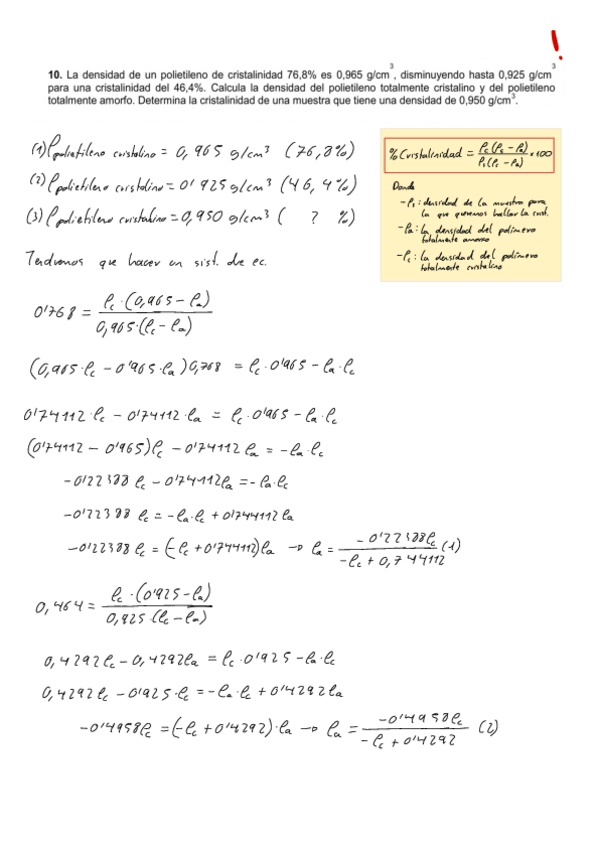 !
10. La densidad de un polietileno de cristalinidad 76,8% es 0,965 g/cm³, disminuyendo hasta 0,925 g/cm³
para una cristalinidad del 46,4%. Calcula la densidad del polietileno totalmente cristalino y del polietileno
totalmente amorfo. Determina la cristalinidad de una muestra que tiene una densidad de 0,950 g/cm³.
(1) ρpolietileno cristalino = 0,965 g/cm³ (76,8%)
(2) ρpolietileno cristalino = 0'925 g/cm³ (46,4%)
(3) ρpolietileno cristalino = 0,950 g/cm³ ( ? %)
% Cristalinidad = ρc(ρs - ρa) / ρs(ρc - ρa) · 100
Donde
- ρs: densidad de la muestra para
la que queremos hallar la crist.
- ρa: la densidad del polímero
totalmente amorfo
- ρc: la densidad del polímero
totalmente cristalino
Tendremos que hacer un sist. de ec.
0'768 = ρc · (0,965 - ρa) / 0,965 · (ρc - ρa)
(0,965 · ρc - 0'965 · ρa) 0,768 = ρc · 0'965 - ρa · ρc
0'74112 · ρc - 0'74112 · ρa = ρc · 0'965 - ρa · ρc
(0'74112 - 0'965) ρc - 0'74112 ρa = - ρa · ρc
- 0'22388 ρc - 0'74112 ρa = - ρa · ρc
- 0'22388 ρc = - ρa · ρc + 0'744112 ρa
- 0'22388 ρc = (- ρc + 0'744112) ρa → ρa = - 0'22388 ρc / - ρc + 0,744112 (1)
0,464 = ρc · (0'925 - ρa) / 0,925 · (ρc - ρa)
0,4292 ρc - 0,4292 ρa = ρc · 0'925 - ρa · ρc
0,4292 ρc - 0'925 · ρc = - ρa · ρc + 0'4292 ρa
- 0'4958 ρc = (- ρc + 0'4292) · ρa → ρa = - 0'4958 ρc / - ρc + 0'4292 (2)